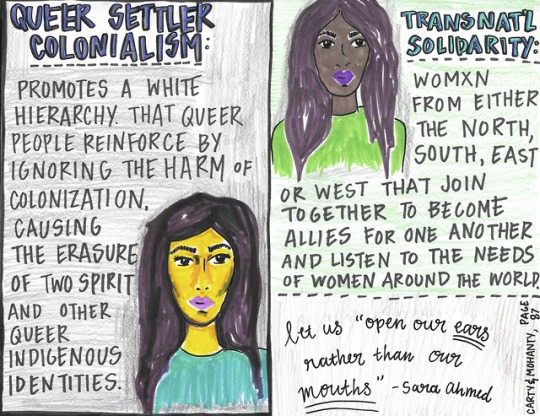 QUEER SETTLER
COLONIALISM:
PROMOTES A WHITE
HIERARCHY. THAT QUEER
PEOPLE REINFORCE BY
IGNORING THE HARM OF
COLONIZATION.
CAUSING
THE ERASURE
OF TWO SPIRIT
AND OTHER
QUEER
INDIGENOUS
IDENTITIES.
TRANSNAT'L
SOLIDARITY:
WOMXN
FROM EITHER
THE NORTH,
SOUTH, EAST
OR WEST THAT JOIN
TOGETHER TO BECOME
ALLIES FOR ONE ANOTHER
AND LISTEN TO THE NEEDS
OF WOMEN AROUND THE WORLD.
let us "open our ears
rather than our
mouths" -Sara Ahmed
CARTY & MOHANTY, PAGE
87